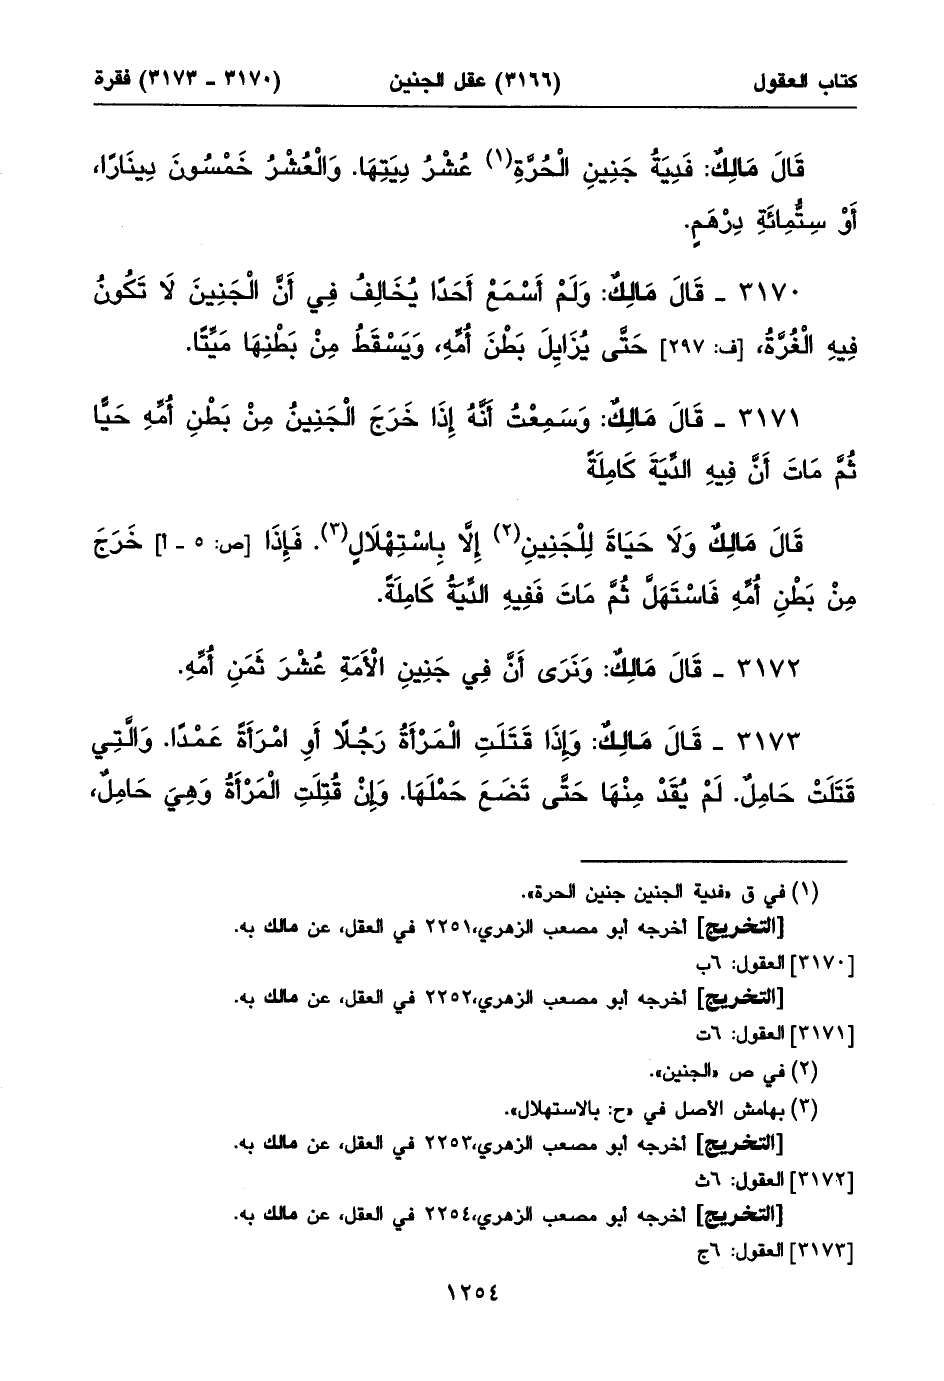 كتاب العقول (٣١٦٦) عقل الجنين (٣١٧٠ - ٣١٧٣) فقرة
قَالَ مَالِكٌ: فَدِيَةُ جَنِينِ الْحُرَّةِ(١) عُشْرُ دِيَتِهَا. وَالْعُشْرُ خَمْسُونَ دِينَارًا،
أَوْ سِتُّمِائَةِ دِرْهَمٍ.
٣١٧٠ - قَالَ مَالِكٌ: وَلَمْ أَسْمَعْ أَحَدًا يُخَالِفُ فِي أَنَّ الْجَنِينَ لَا تَكُونُ
فِيهِ الْغُرَّةُ، [ف: ٢٩٧] حَتَّى يُزَايِلَ بَطْنَ أُمِّهِ، وَيَسْقَطُ مِنْ بَطْنِهَا مَيِّتًا.
٣١٧١ - قَالَ مَالِكٌ: وَسَمِعْتُ أَنَّهُ إِذَا خَرَجَ الْجَنِينُ مِنْ بَطْنِ أُمِّهِ حَيًّا
ثُمَّ مَاتَ أَنَّ فِيهِ الدِّيَةَ كَامِلَةً
قَالَ مَالِكٌ وَلَا حَيَاةَ لِلْجَنِينِ(٢) إِلَّا بِاسْتِهْلَالٍ(٣). فَإِذَا [ص: ٥ - أ] خَرَجَ
مِنْ بَطْنِ أُمِّهِ فَاسْتَهَلَّ ثُمَّ مَاتَ فَفِيهِ الدِّيَةُ كَامِلَةً.
٣١٧٢ - قَالَ مَالِكٌ: وَنَرَى أَنَّ فِي جَنِينِ الْأَمَةِ عُشْرَ ثَمَنِ أُمِّهِ.
٣١٧٣ - قَالَ مَالِكٌ: وَإِذَا قَتَلَتِ الْمَرْأَةُ رَجُلًا أَوِ امْرَأَةً عَمْدًا. وَالَّتِي
قَتَلَتْ حَامِلٌ. لَمْ يُقَدْ مِنْهَا حَتَّى تَضَعَ حَمْلَهَا. وَإِنْ قُتِلَتِ الْمَرْأَةُ وَهِيَ حَامِلٌ،
(١) في ق «فدية الجنين جنين الحرة».
[التخريج] أخرجه أبو مصعب الزهري،٢٢٥١ في العقل، عن مالك به.
[٣١٧٠] العقول: ٦ب
[التخريج] أخرجه أبو مصعب الزهري،٢٢٥٢ في العقل، عن مالك به.
[٣١٧١] العقول: ٦ت
(٢) في ص «الجنين».
(٣) بهامش الأصل في «ح: بالاستهلال».
[التخريج] أخرجه أبو مصعب الزهري،٢٢٥٣ في العقل، عن مالك به.
[٣١٧٢] العقول: ٦ث
[التخريج] أخرجه أبو مصعب الزهري،٢٢٥٤ في العقل، عن مالك به.
[٣١٧٣] العقول: ٦ج
١٢٥٤